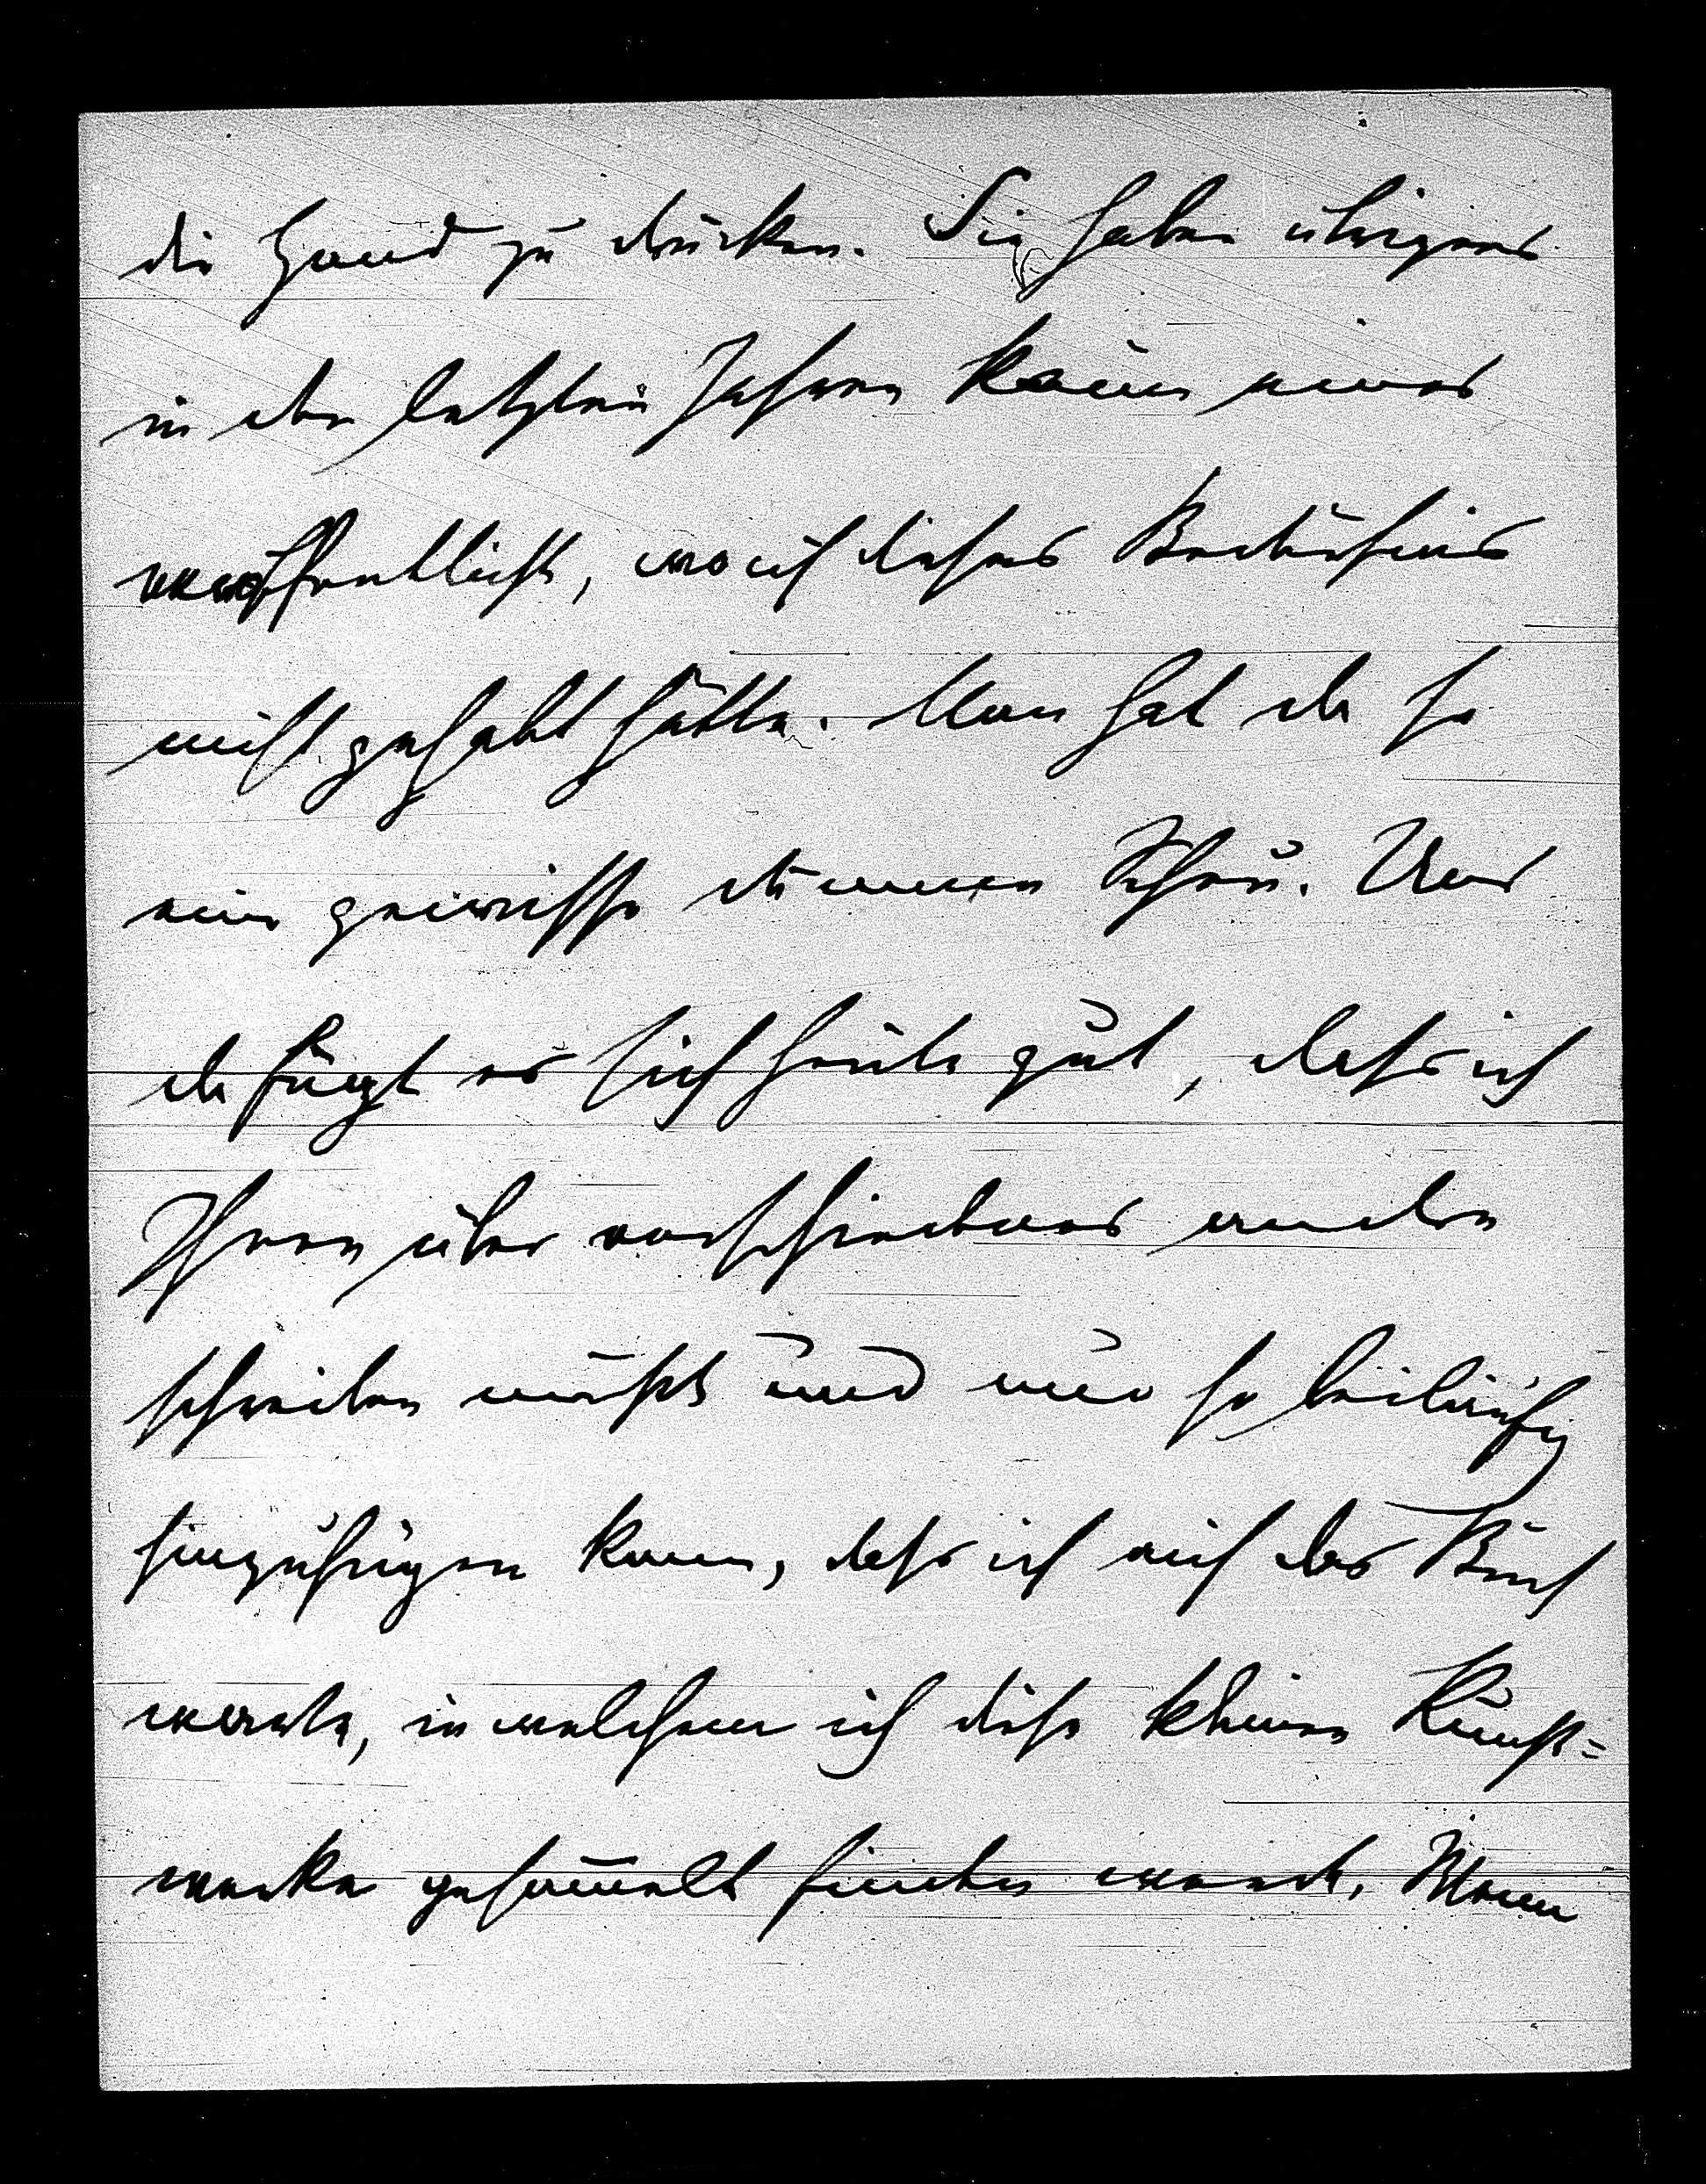 die Hand zu drücken. Sie haben übrigens
in den letzten Jahren kaum etwas
veröffentlicht, wo ich dieses Bedürfnis
nicht gehabt hätte. Man hat da so
eine gewisse dumme Scheu. Und
da fügt es sich heute gut, dass ich
Ihnen über verschiednes andre
schreiben musste und nun so beiläufig
hinzufügen kann, dass ich auf das Buch
warte, in welchem ich diese kleinen Kunst=
werke gesammelt finden werde. Wenn